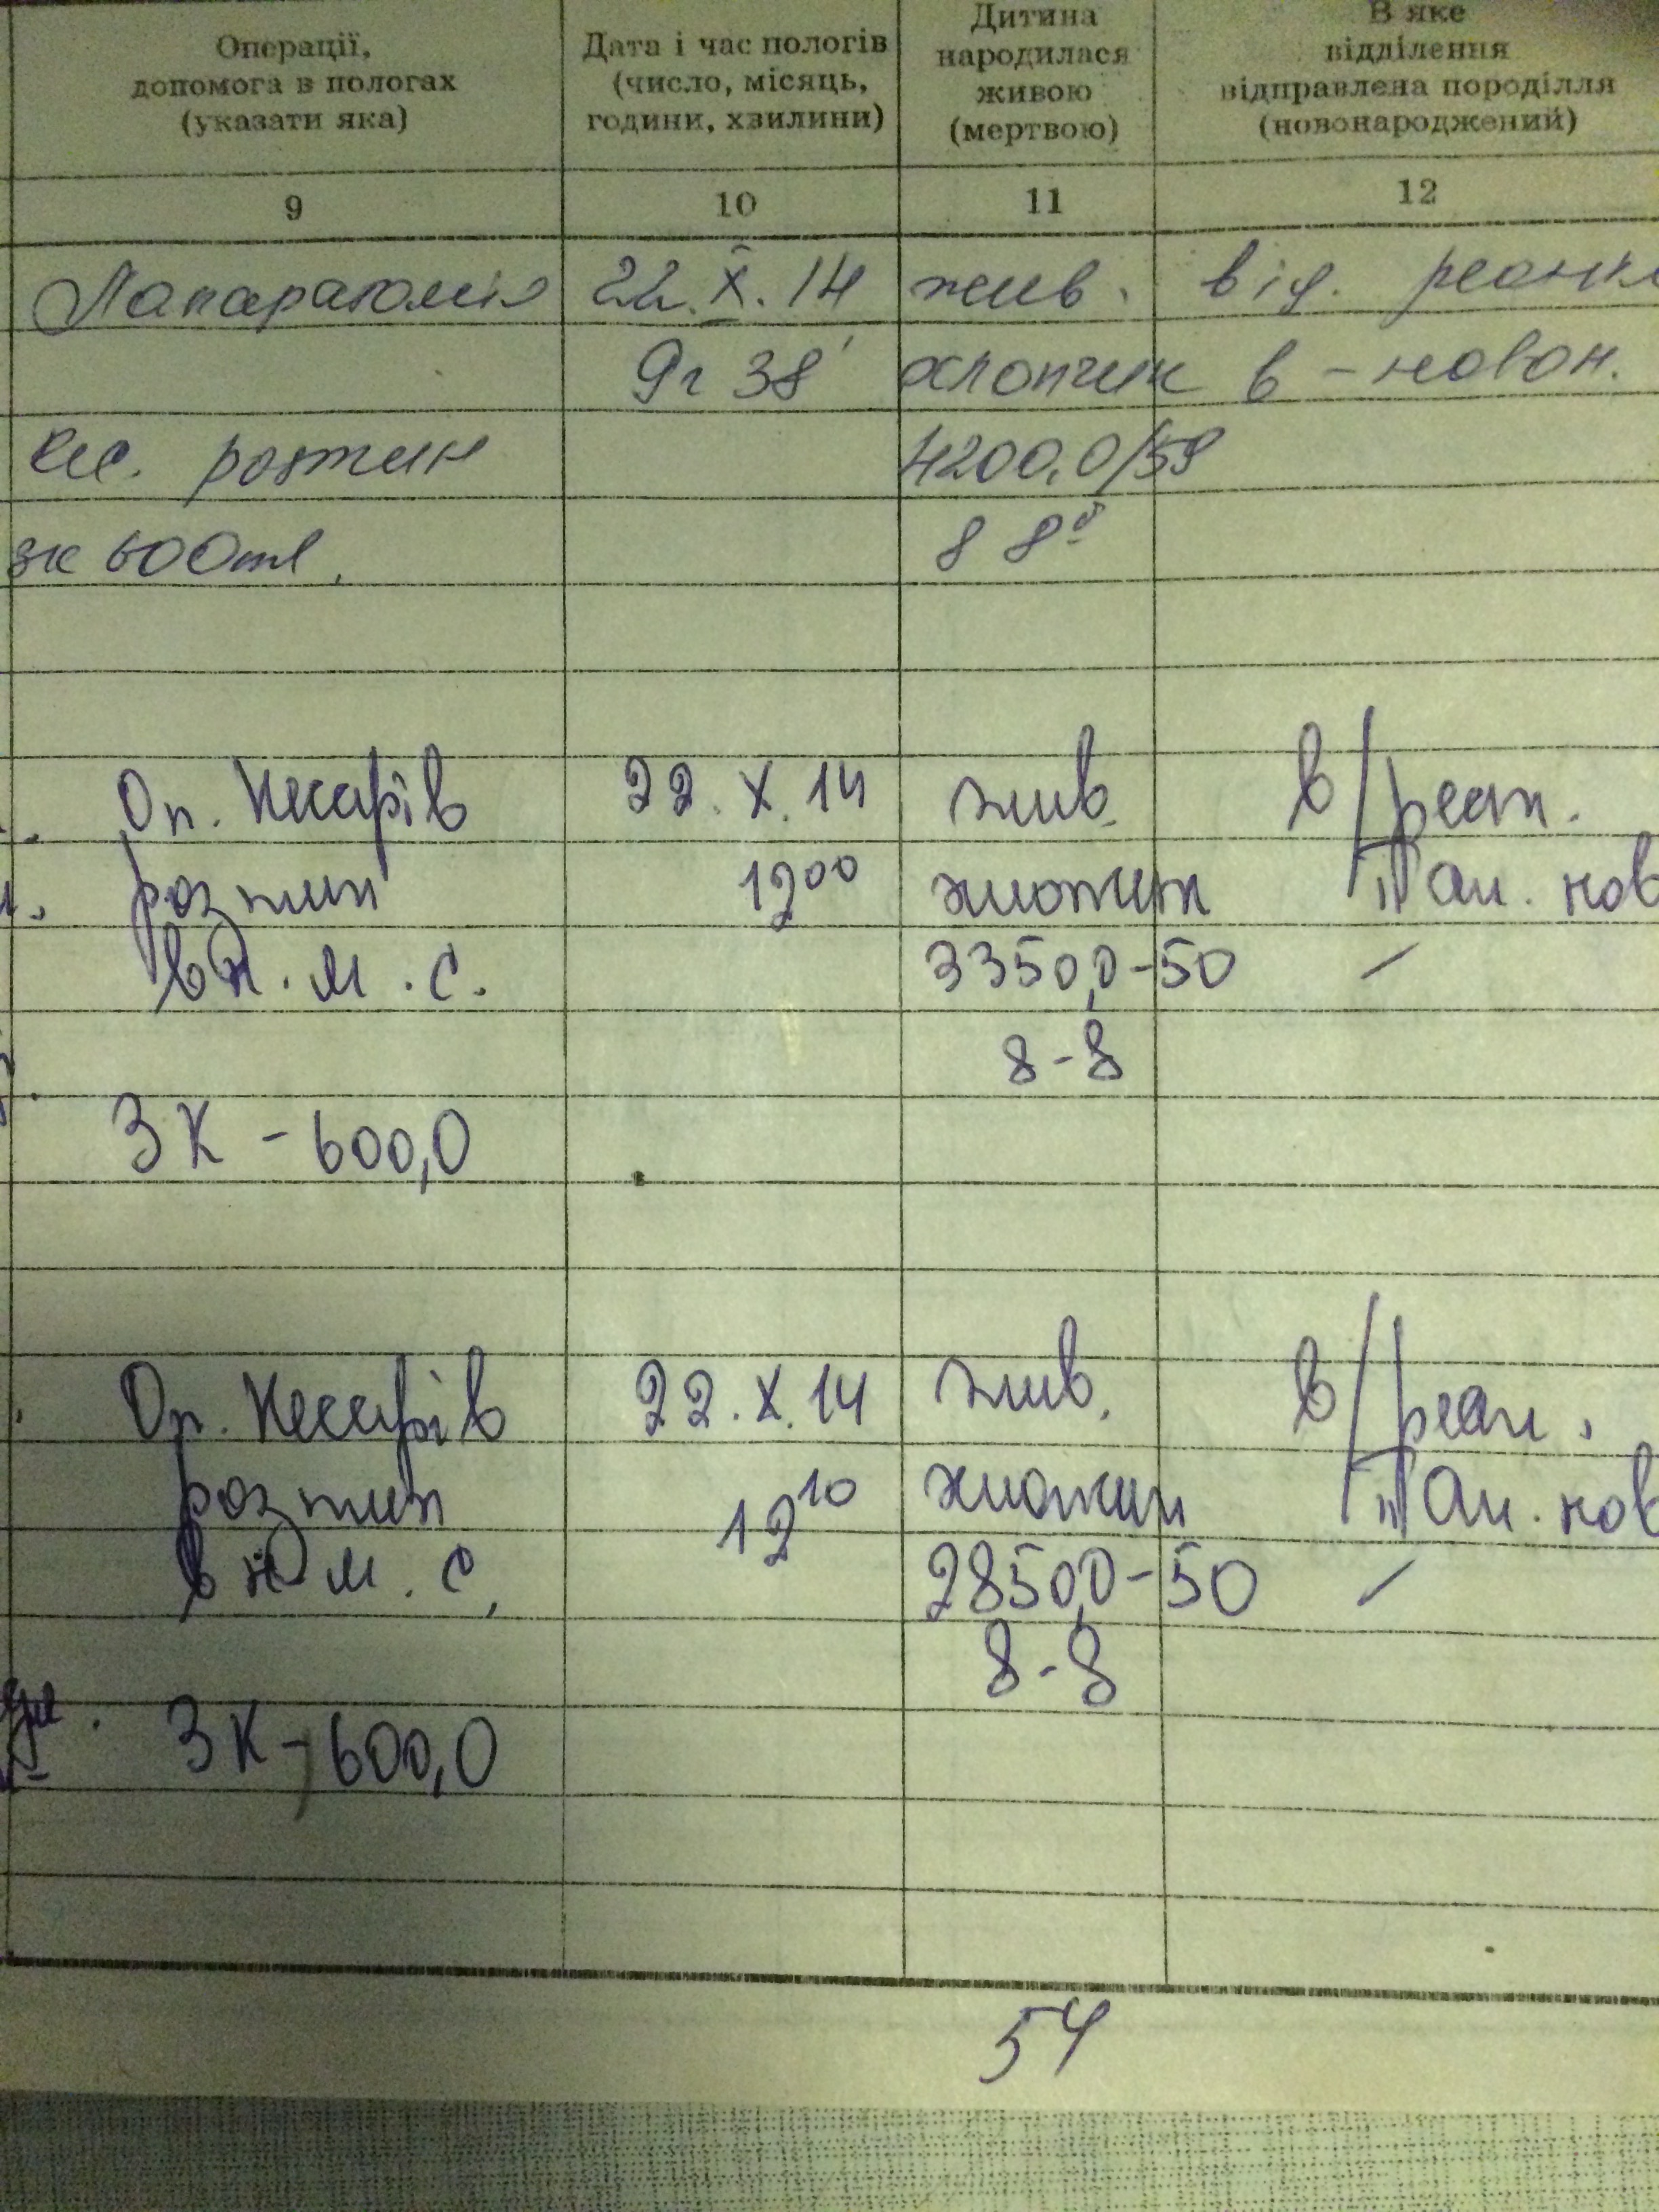 Операції,
допомога в пологах
(указати яка)
Дата і час пологів
(число, місяць,
години, хвилини)
Дитина
народилася
живою
(мертвою)
В яке
відділення
відправлена породілля
(новонароджений)
9 10 11 12
Лапаратомія 22.X.14 жив. від.
9г 38' хлопчик в - новон.
кес. розтин 4200,0/59
зк 600мл. 8 8б
Оп. Кесарів 22.X.14 жив. в/реан.
розтин 12 00 хлопчик нов
в н.м.с. 3350,0-50
8-8
ЗК - 600,0
Оп. Кесарів 22.X.14 жив. в/реан.
розтин 12 10 хлопчик нов
в н м.с. 2850,0-50
8-8
ЗК - 600,0
54